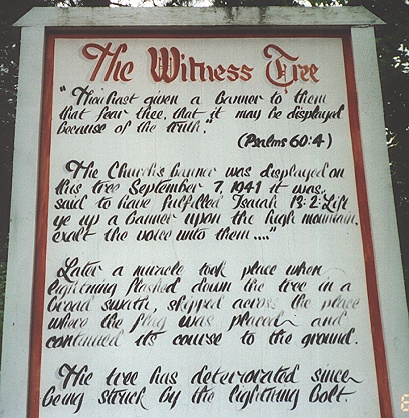 The Witness Tree
"Thou hast given a banner to them
that fear thee, that it may be displayed
because of the truth."
(Psalms 60:4)
The Church's banner was displayed on
this tree September 7, 1941 it was
said to have fulfilled Isaiah 13:2: Lift
ye up a banner upon the high mountain,
exalt the voice unto them...."
Later a miracle took place when
lightning flashed down the tree in a
broad swath, skipped across the place
where the flag was placed and
continued its course to the ground.
The tree has deteriorated since
being struck by the lightning bolt